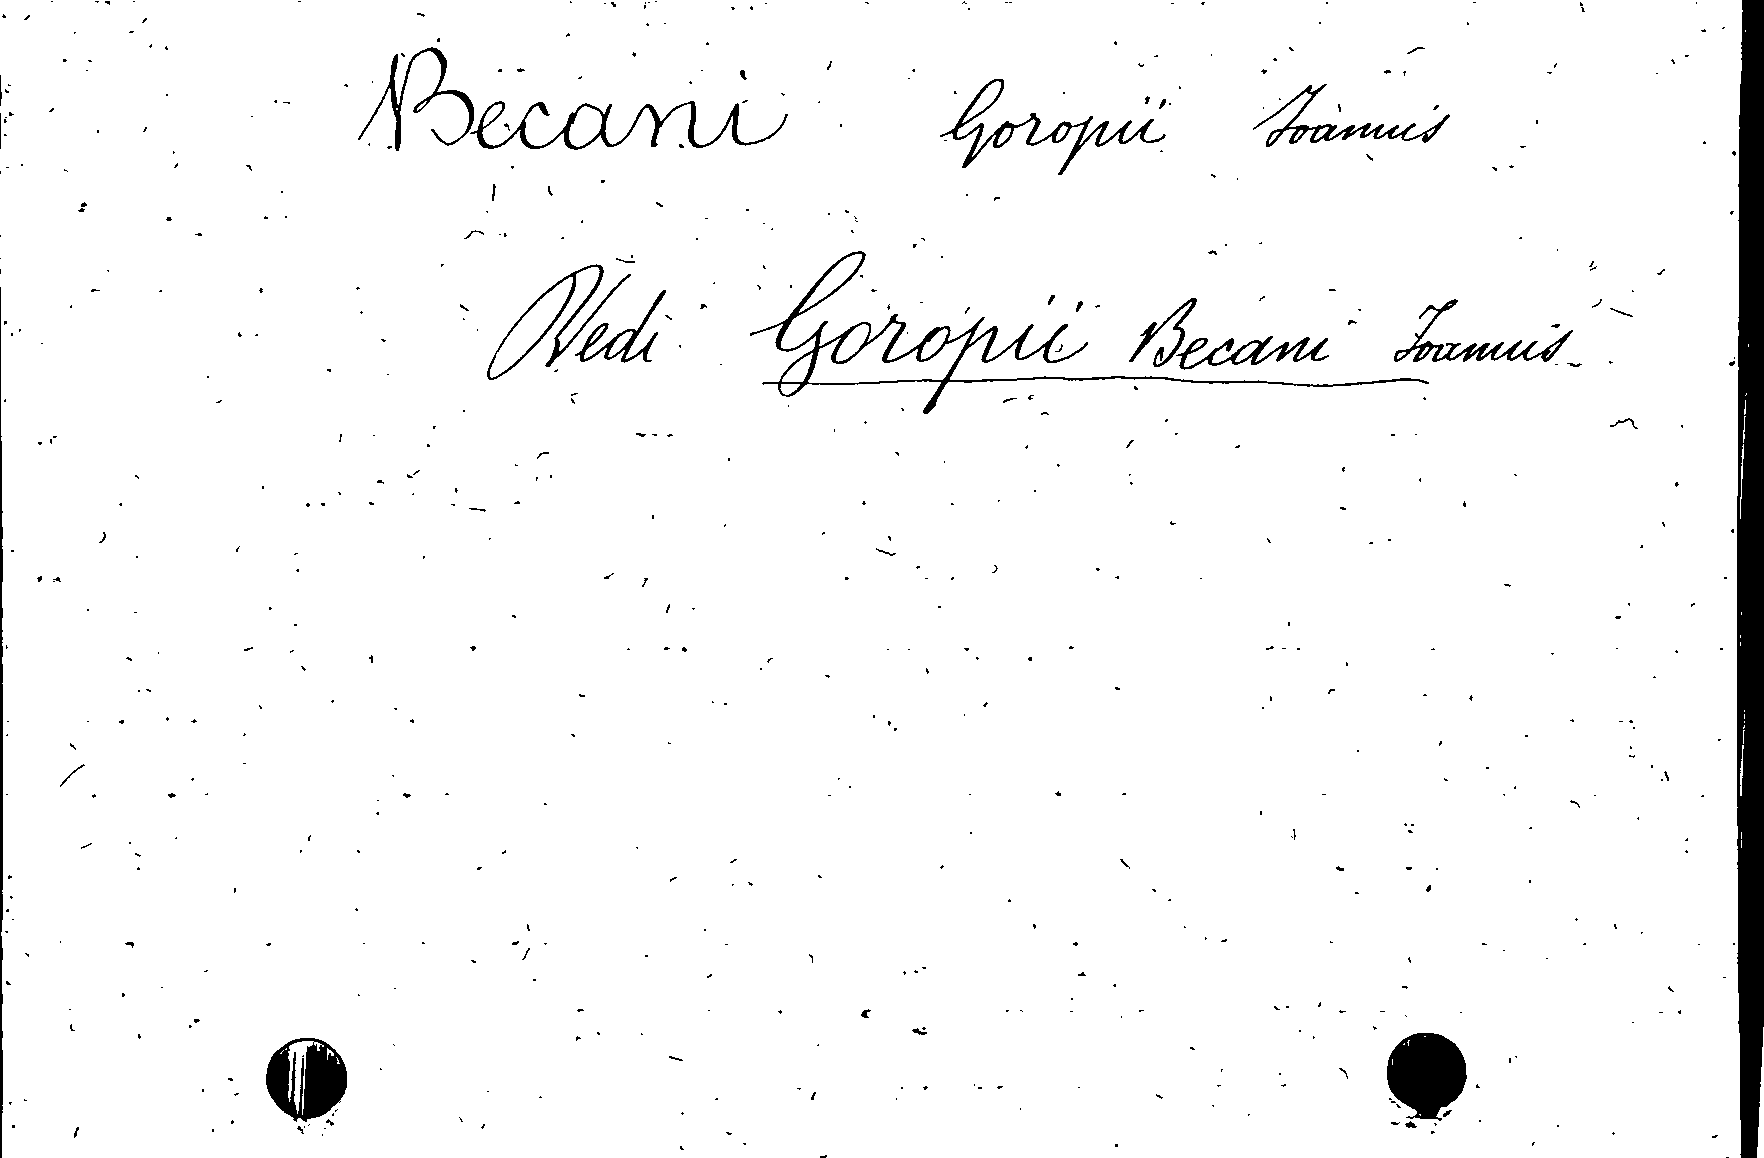 Becani Goropii Ioannis
Vedi Goropii Becani Ioannis